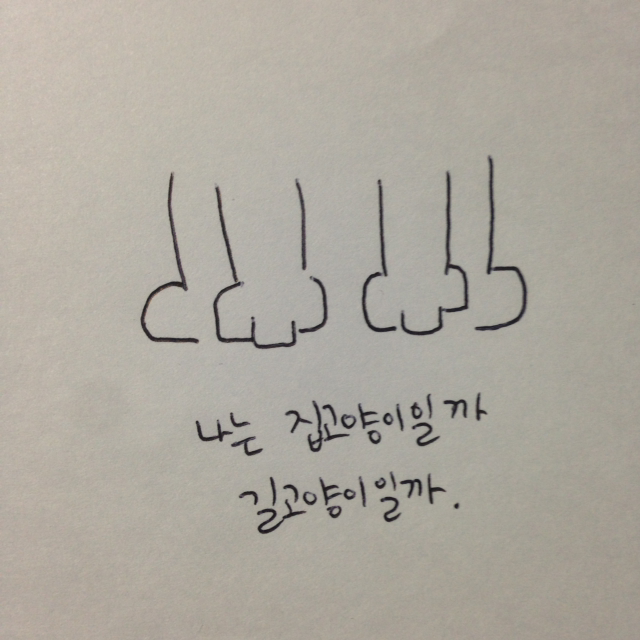 나는 집고양이일까
길고양이일까.